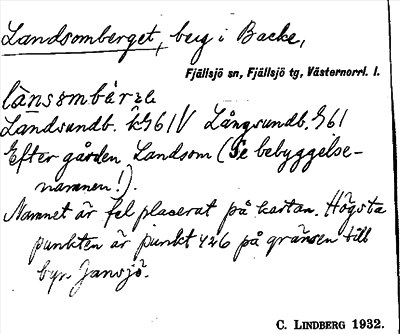 Landsomberget, berg i Backe,
Fjällsjö sn, Fjällsjö tg, Västernorrl. l.
Landsundb. kG61V Långsundb. G61
Efter gården Landsom (Se bebyggelse-
namnen!).
Namnet är fel placerat på kartan. Högsta
punkten är punkt 426 på gränsen till
byn Jansjö.
C. LINDBERG 1932.